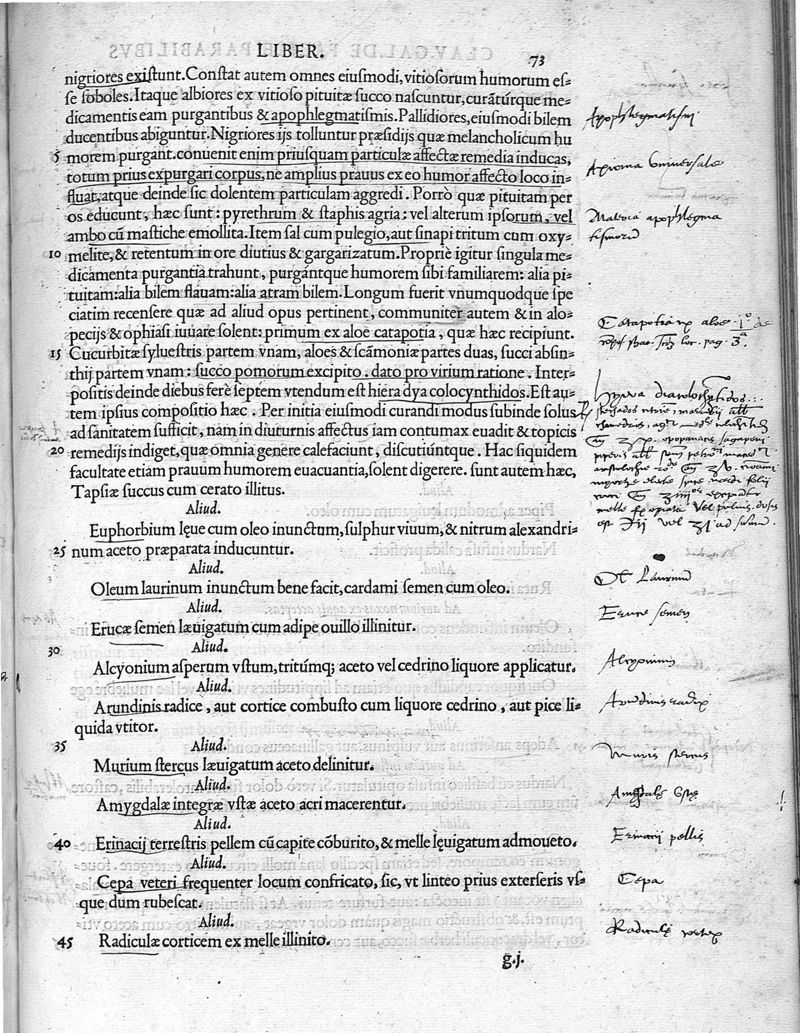 LIBER.
73
nigriores existunt. Constat autem omnes eiusmodi, vitiosorum humorum es=
se soboles. Itaque albiores ex vitioso pituitæ succo nascuntur, curãtúrque me=
dicamentis eam purgantibus & apophlegmatismis. Pallidiores, eiusmodi bilem
ducentibus abiguntur. Nigriores ijs tolluntur præsidijs quæ melancholicum hu
5 morem purgant. conuenit enim priusquam particulæ affectæ remedia inducas,
totum prius expurgari corpus, ne amplius prauus ex eo humor affecto loco in=
fluat, atque deinde sic dolentem particulam aggredi. Porrò quæ pituitam per
os educunt, hæc sunt: pyrethrum & staphis agria: vel alterum ipsorum, vel
ambo cũ mastiche emollita. Item sal cum pulegio, aut sinapi tritum cum oxy=
10 melite, & retentum in ore diutius & gargarizatum. Propriè igitur singula me=
dicamenta purgantia trahunt, purgántque humorem sibi familiarem: alia pi=
tuitam: alia bilem flauam: alia atram bilem. Longum fuerit vnumquodque spe
ciatim recensere quæ ad aliud opus pertinent, communiter autem & in alo=
pecijs & ophiasi iuuare solent: primum ex aloe catapotia, quæ hæc recipiunt.
15 Cucurbitæ syluestris partem vnam, aloes & scãmoniæ partes duas, succi absin=
thij partem vnam: succo pomorum excipito. dato pro virium ratione. Inter=
positis deinde diebus ferè septem vtendum est hiera dya colocynthidos. Est au=
tem ipsius compositio hæc. Per initia eiusmodi curandi modus subinde solus
ad sanitatem sufficit, nam in diuturnis affectus iam contumax euadit & topicis
20 remedijs indiget, quæ omnia genere calefaciunt, discutiúntque. Hac siquidem
facultate etiam prauum humorem euacuantia, solent digerere. sunt autem hæc,
Tapsiæ succus cum cerato illitus.
Aliud.
Euphorbium lęue cum oleo inunctum, sulphur viuum, & nitrum alexandri=
25 num aceto præparata inducuntur.
Aliud.
Oleum laurinum inunctum bene facit, cardami semen cum oleo.
Aliud.
Erucæ semen læuigatum cum adipe ouillo illinitur.
30 Aliud.
Alcyonium asperum vstum, tritúmq; aceto vel cedrino liquore applicatur.
Aliud.
Arundinis radice, aut cortice combusto cum liquore cedrino, aut pice li=
quida vtitor.
35 Aliud.
Murium stercus læuigatum aceto delinitur.
Aliud.
Amygdalæ integræ vstæ aceto acri macerentur.
Aliud.
40 Erinacij terrestris pellem cũ capite cõburito, & melle lęuigatum admoueto.
Aliud.
Cepa veteri frequenter locum confricato, sic, vt linteo prius exterseris vs=
que dum rubescat.
Aliud.
45 Radiculæ corticem ex melle illinito.
g.j.
Apophlegmatismi
Axioma Vniversale
Materia apophlegma
tismorum
Catapotia ex aloe
Ol Laurinũ
Erucę semen
Alcyonium
Arundinis radix
Muris stercus
Amigdalę vstę
Erinacij pellis
Cepa
Radiculę cortex